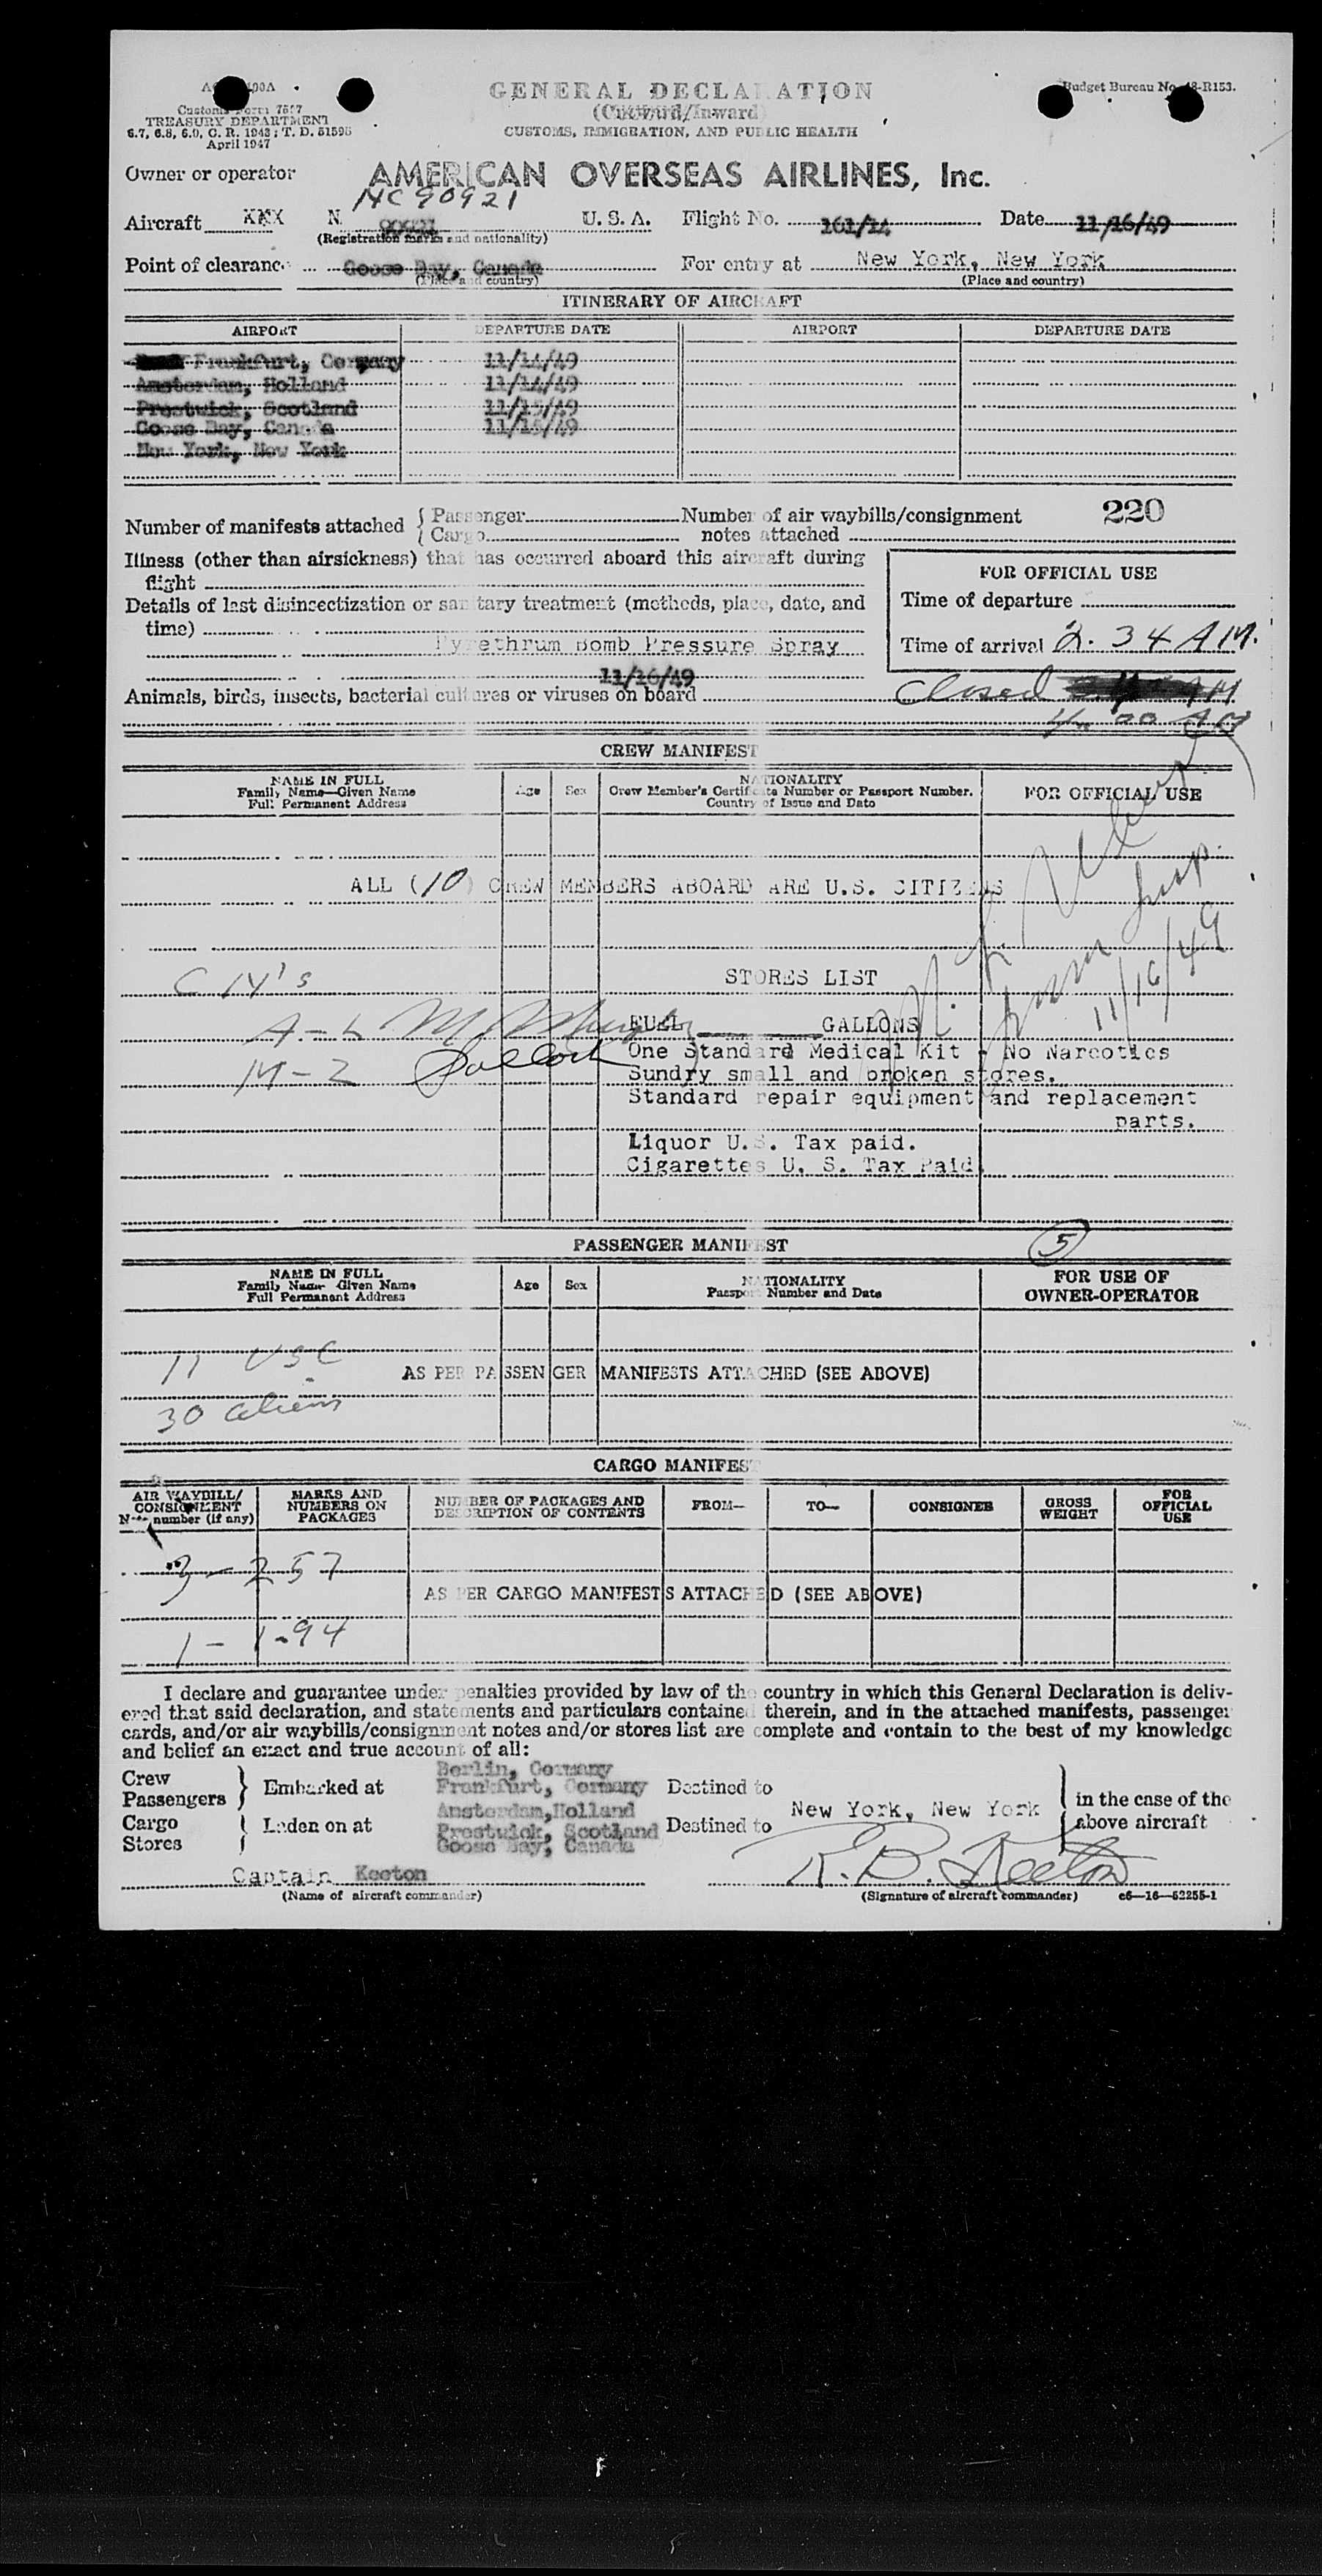 GENERAL DECLARATION
Budget Bureau No. 48-R153.
(Outward/Inward)
Customs Form 7507
TREASURY DEPARTMENT
CUSTOMS, IMMIGRATION, AND PUBLIC HEALTH
6.7, 6.8, 6.9, C. R. 1943; T. D. 51595
April 1947
Owner or operator AMERICAN OVERSEAS AIRLINES, Inc.
NC90921
Aircraft XXX N U. S. A. Flight No. 161/14 Date 11/16/49
(Registration marks and nationality)
Point of clearance Goose Bay, Canada For entry at New York, New York
(Place and country) (Place and country)
ITINERARY OF AIRCRAFT
AIRPORT DEPARTURE DATE AIRPORT DEPARTURE DATE
Frankfurt, Germany 11/14/49
Amsterdam, Holland 11/14/49
Prestwick, Scotland 11/15/49
Goose Bay, Canada 11/15/49
New York, New York
220
Number of manifests attached { Passenger Number of air waybills/consignment
{ Cargo notes attached
Illness (other than airsickness) that has occurred aboard this aircraft during
flight
FOR OFFICIAL USE
Details of last disinsectization or sanitary treatment (methods, place, date, and
time)
Time of departure
Pyrethrum Bomb Pressure Spray
Time of arrival 2.34 AM.
11/16/49
Animals, birds, insects, bacterial cultures or viruses on board Closed AM
CREW MANIFEST
NAME IN FULL
Family Name—Given Name
Full Permanent Address
Age Sex
NATIONALITY
Crew Member's Certificate Number or Passport Number.
Country of Issue and Date
FOR OFFICIAL USE
ALL (10) CREW MEMBERS ABOARD ARE U.S. CITIZENS
Insp.
11/16/49
STORES LIST
FUEL GALLONS
One Standard Medical Kit - No Narcotics
M-2 Pollock
Sundry small and broken stores.
Standard repair equipment and replacement
parts.
Liquor U.S. Tax paid.
Cigarettes U. S. Tax Paid.
PASSENGER MANIFEST
5
NAME IN FULL
Family Name Given Name
Full Permanent Address
Age Sex
NATIONALITY
Passport Number and Date
FOR USE OF
OWNER-OPERATOR
11 USC
AS PER PASSENGER MANIFESTS ATTACHED (SEE ABOVE)
30 aliens
CARGO MANIFEST
AIR WAYBILL/
CONSIGNMENT
Note number (if any)
MARKS AND
NUMBERS ON
PACKAGES
NUMBER OF PACKAGES AND
DESCRIPTION OF CONTENTS
FROM—
TO—
CONSIGNEE
GROSS
WEIGHT
FOR
OFFICIAL
USE
3-257
AS PER CARGO MANIFESTS ATTACHED (SEE ABOVE)
1-1-94
I declare and guarantee under penalties provided by law of the country in which this General Declaration is deliv-
ered that said declaration, and statements and particulars contained therein, and in the attached manifests, passenger
cards, and/or air waybills/consignment notes and/or stores list are complete and contain to the best of my knowledge
and belief an exact and true account of all:
Berlin, Germany
Crew
Passengers } Embarked at Frankfurt, Germany Destined to
Amsterdam, Holland
New York, New York
in the case of the
above aircraft
Cargo
Stores { Laden on at Prestwick, Scotland Destined to
Goose Bay, Canada
Captain Keeton R. B. Keeton
(Name of aircraft commander) (Signature of aircraft commander) c6—16—52255-1